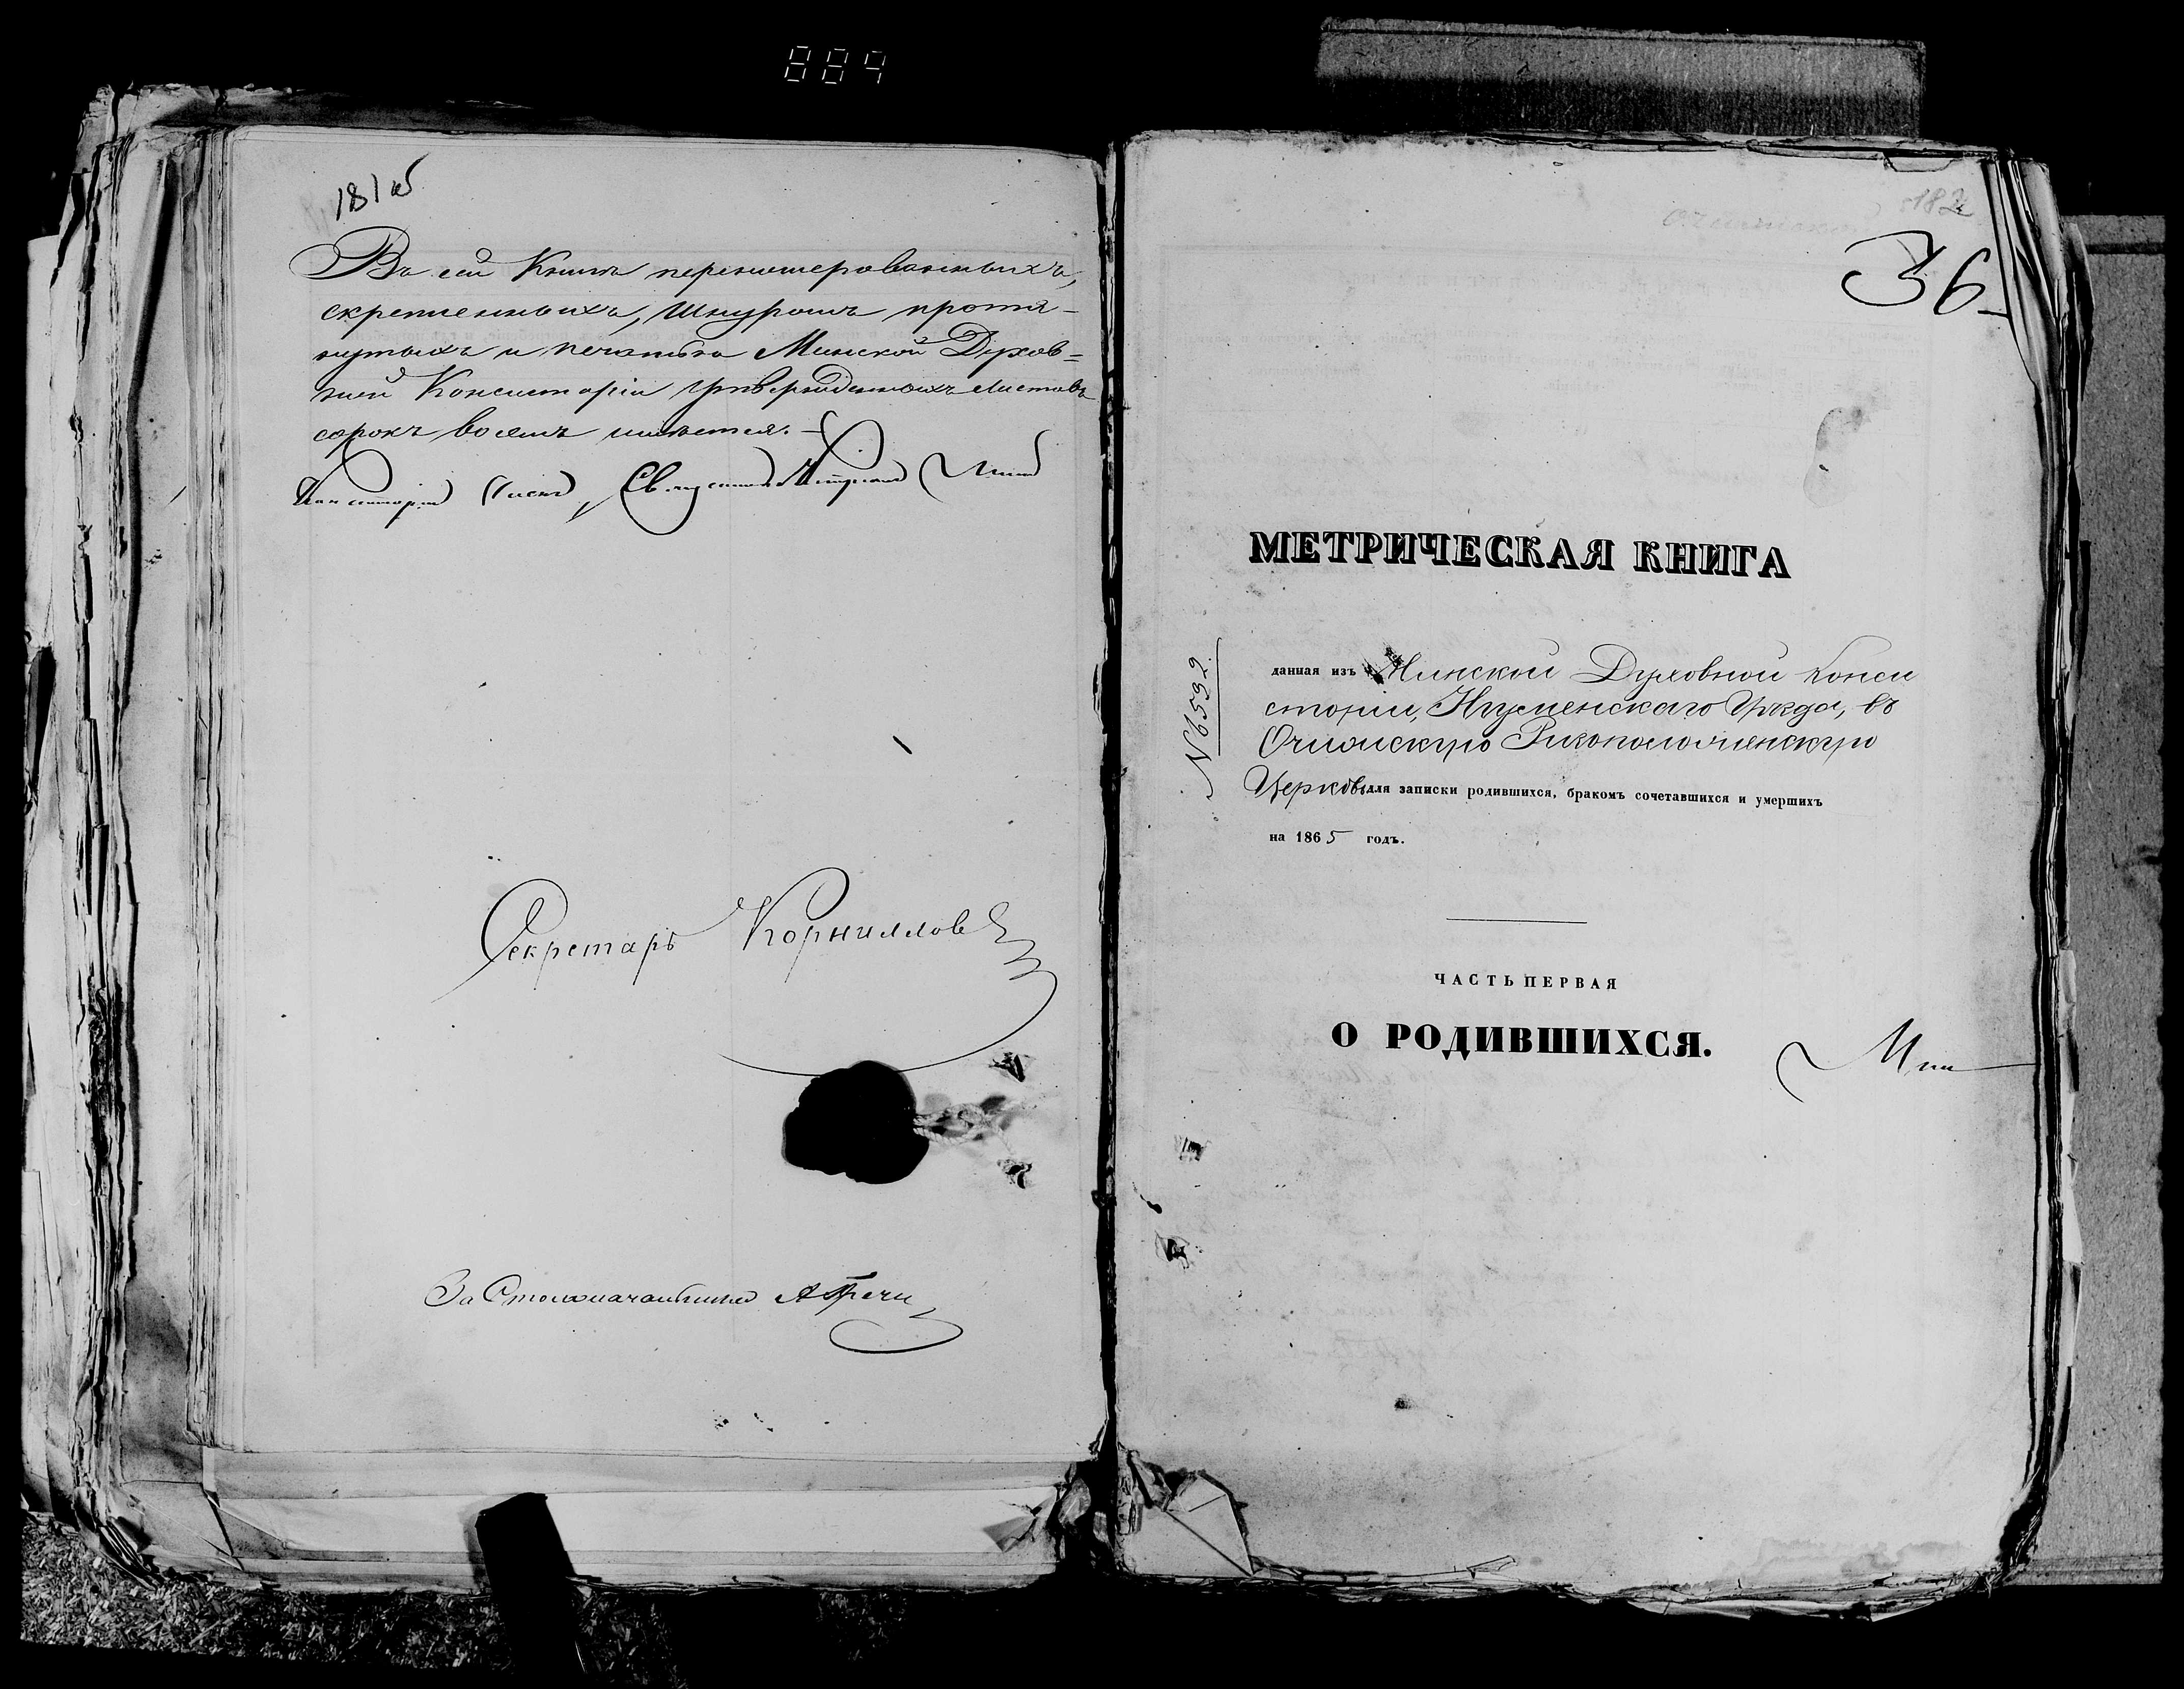 889
181 об
Въ сей Книгѣ перенумерованныхъ,
скрепленныхъ, шнуромъ протя-
нутыхъ и печатью Минской Духов=
ной Консисторіи утвержденныхъ листовъ
сорокъ восемь имѣется.
Консисторіи Членъ, Священникъ
Секретарь Корнилловъ
За Столоначальника
182
36
МЕТРИЧЕСКАЯ КНИГА
№ 6592
данная изъ Минской Духовной Конси
сторіи, Игуменскаго Уѣзда, въ
Очижскую Ризоположенскую
Церковь для записки родившихся, бракомъ сочетавшихся и умершихъ
на 1865 годъ.
ЧАСТЬ ПЕРВАЯ
О РОДИВШИХСЯ.